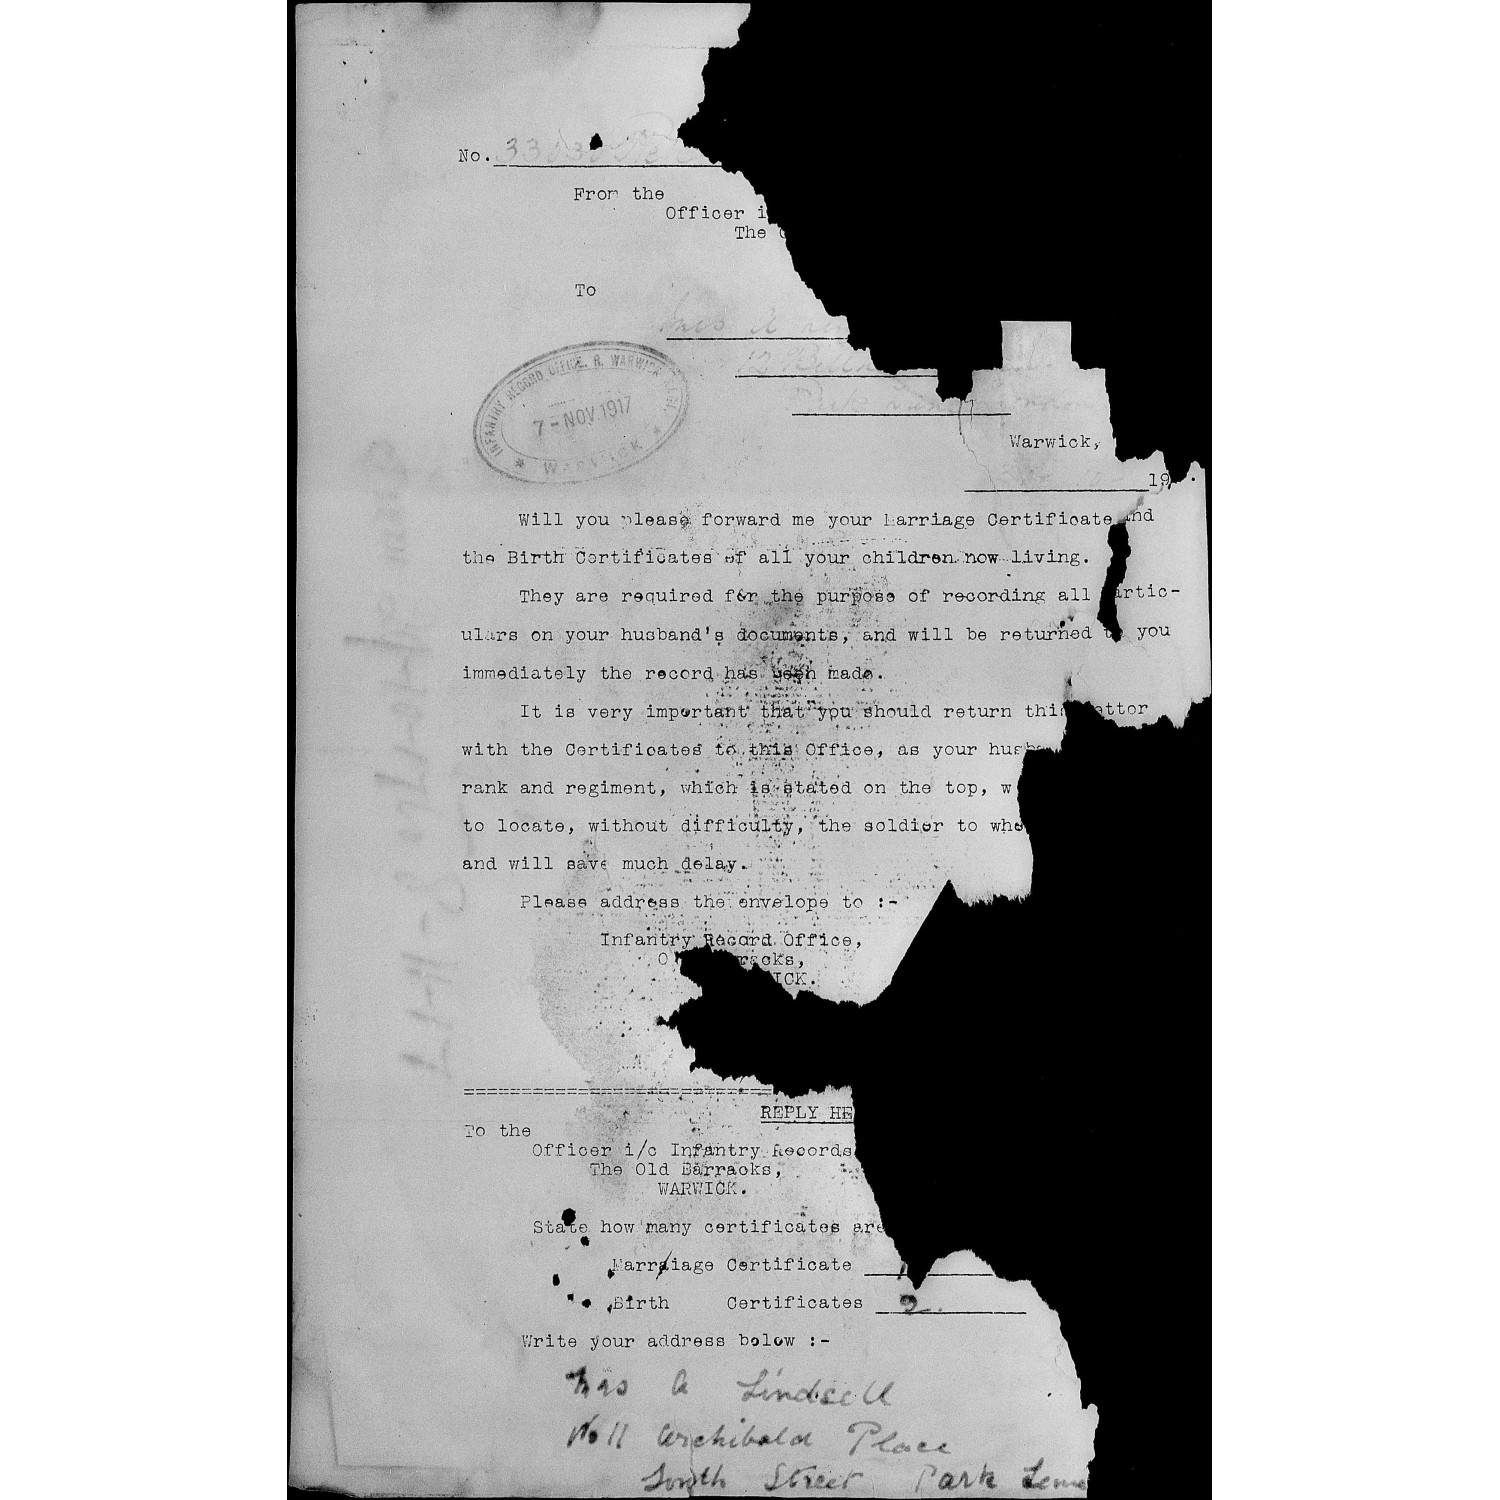 No.
From the
Officer i
The
To
INFANTRY RECORD OFFICE, R. WARWICK
7 - NOV 1917
WARWICK
Warwick,
19
Will you please forward me your Marriage Certificate and
the Birth Certificates of all your children now living.
They are required for the purpose of recording all partic-
ulars on your husband's documents, and will be returned to you
immediately the record has been made.
It is very important that you should return this letter
with the Certificates to this Office, as your husb
rank and regiment, which is stated on the top, w
to locate, without difficulty, the soldier to who
and will save much delay.
Please address the envelope to :-
Infantry Record Office,
O rracks,
ICK.
===========================
REPLY HE
To the
Officer i/c Infantry Records
The Old Barracks,
WARWICK.
State how many certificates are
Marraiage Certificate 1
Birth Certificates 2.
Write your address below :-
Mrs A Lindsell
No 11 Archibald Place
South Street Park Lem